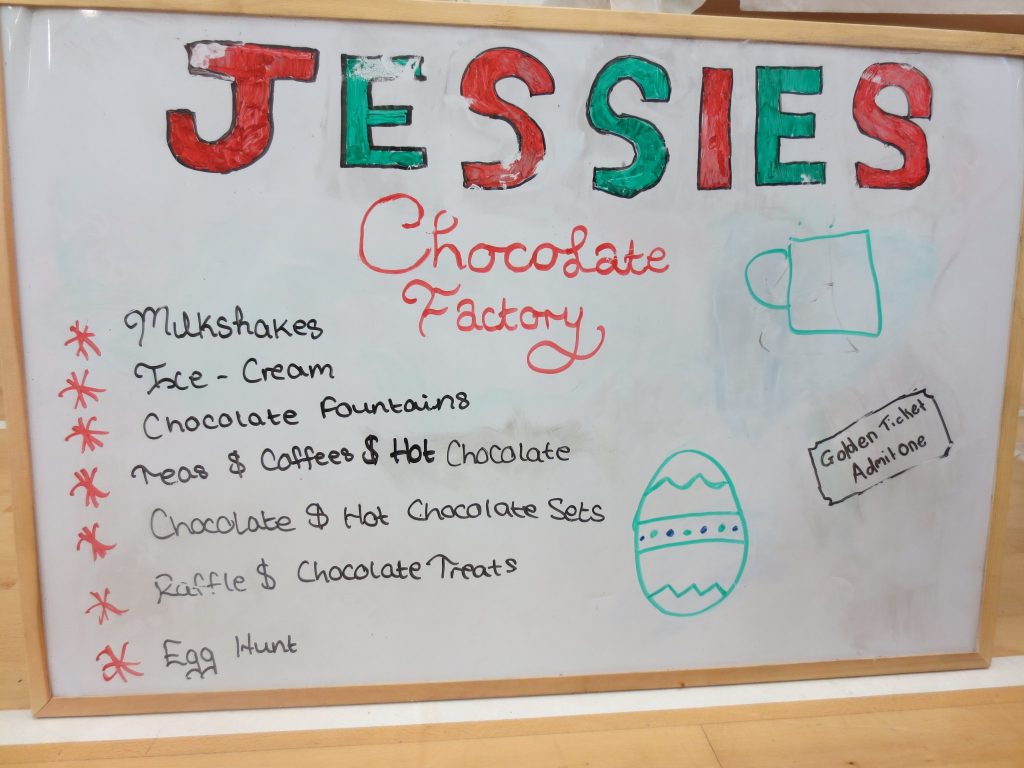 JESSIES
Chocolate
Factory
* Milkshakes
* Ice - Cream
* Chocolate fountains
* Teas $ Coffees $ Hot Chocolate
* Chocolate $ Hot Chocolate Sets
* Raffle $ Chocolate Treats
* Egg Hunt
Golden Ticket
Admit one